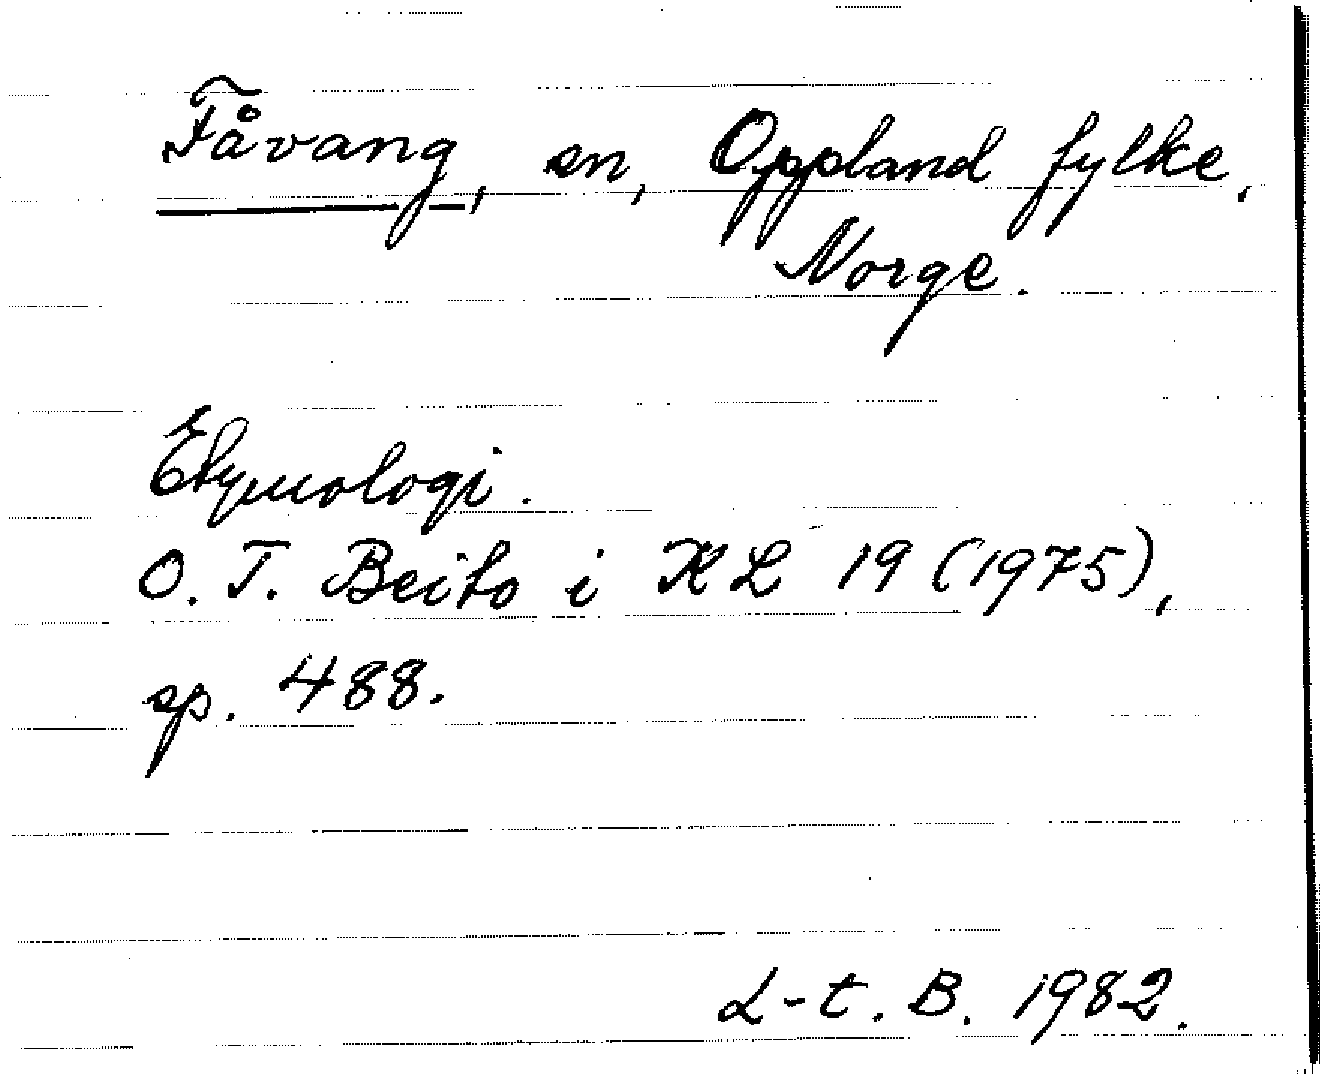 Fåvang, sn, Oppland fylke,
Norge.
Etymologi.
O. T. Beito i KL 19 (1975),
sp. 488.
L-t. B. 1982.